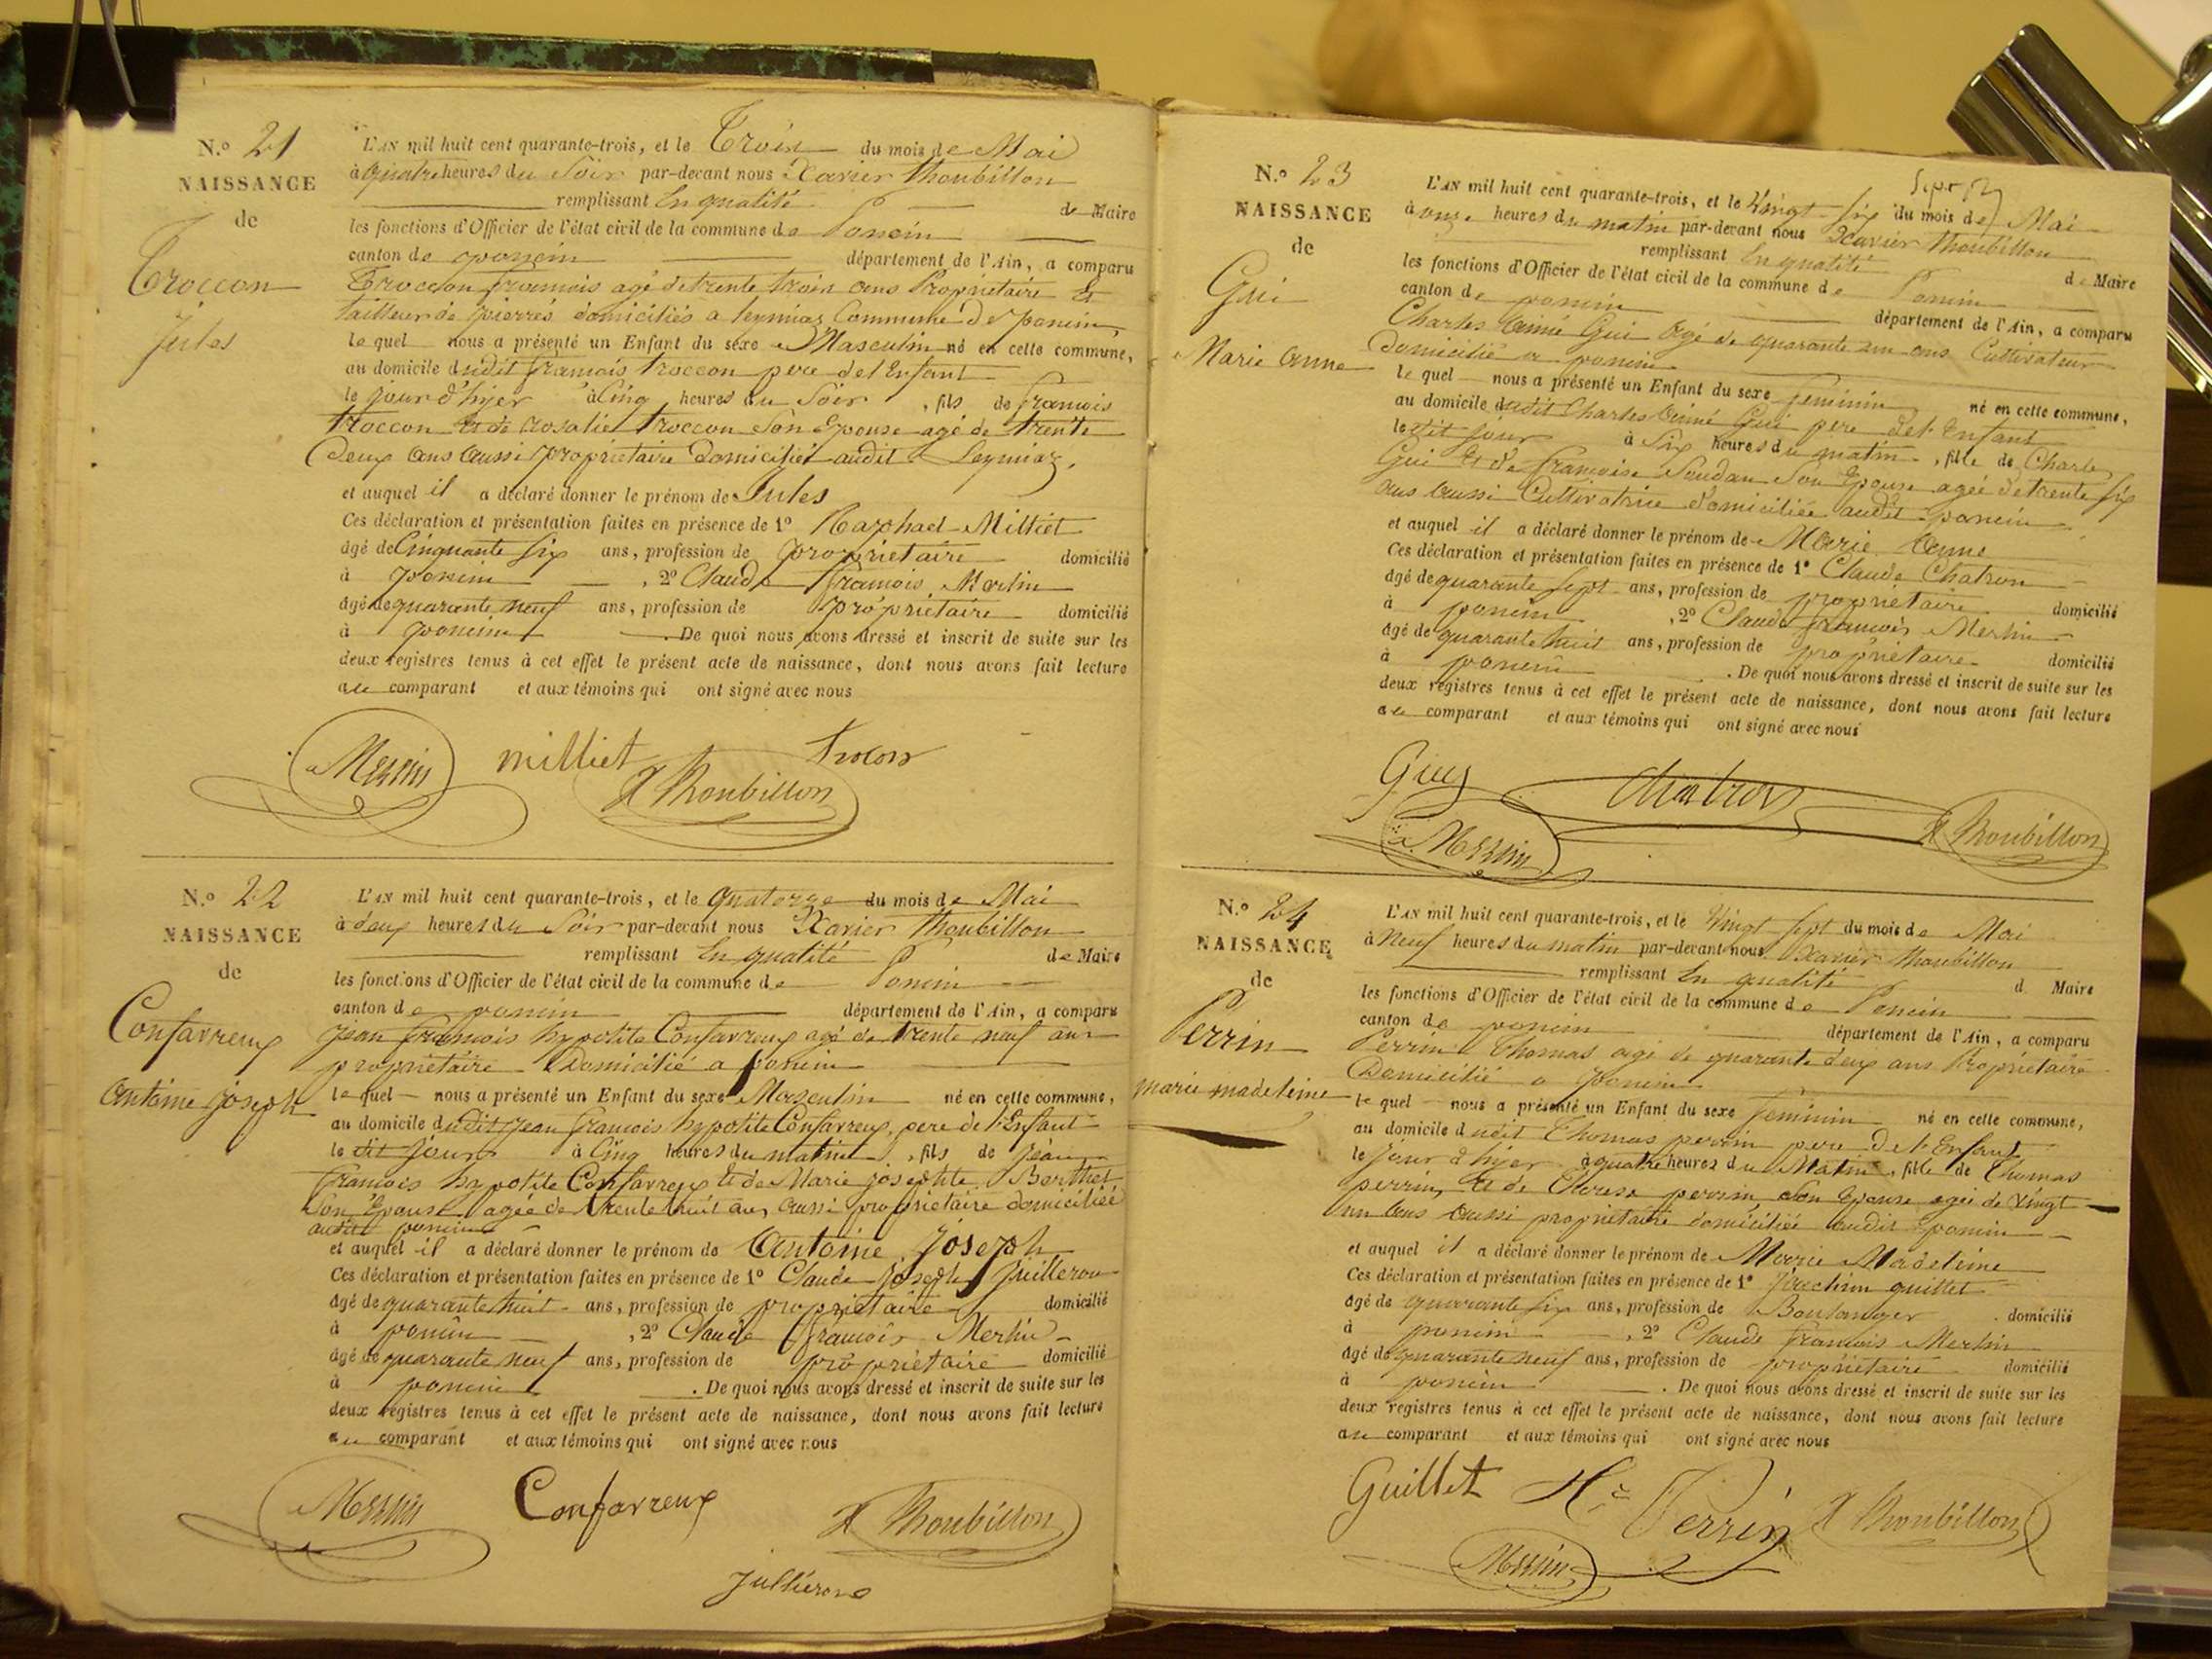 N.º 21
NAISSANCE
de
Troccon
Jules
L'AN mil huit cent quarante-trois, et le Trois du mois de Mai
à quatre heures du Soir par-devant nous Xavier Thoubillon
remplissant En qualité de Maire
les fonctions d'Officier de l'état civil de la commune de Poncin
canton de poncin département de l'Ain, a comparu
Troccon francois agé de trente trois ans Propriétaire Et
tailleur de pierres domiciliés a leymiaz Commune de poncin,
le quel nous a présenté un Enfant du sexe Masculin né en cette commune,
au domicile dudit francois troccon pere de l'Enfant
le jour d'hyer à Cinq heures du Soir, fils de francois
troccon Et de rosalie troccon Son Epouse agé de trente
deux ans aussi propriétaire Domiciliés audit Leymiaz,
et auquel il a déclaré donner le prénom de Jules
Ces déclaration et présentation faites en présence de 1º Raphael Milliet
âgé de Cinquante Six ans, profession de propriétaire domicilié
à poncin, 2º Claude francois Merlin
âgé de quarante neuf ans, profession de propriétaire domicilié
à poncin. De quoi nous avons dressé et inscrit de suite sur les
deux registres tenus à cet effet le présent acte de naissance, dont nous avons fait lecture
au comparant et aux témoins qui ont signé avec nous
Merlin milliet trocon
X Thoubillon
N.º 22
NAISSANCE
de
Confavreux
Antoine joseph
L'AN mil huit cent quarante-trois, et le quatorze du mois de Mai
à deux heures du Soir par-devant nous Xavier Thoubillon
remplissant En qualité de Maire
les fonctions d'Officier de l'état civil de la commune de Poncin
canton de poncin département de l'Ain, a comparu
jean francois hypolite Confavreux agé de trente neuf ans
propriétaire Domicilié a poncin
le quel nous a présenté un Enfant du sexe Masculin né en cette commune,
au domicile dudit jean francois hypolite Confavreux, pere de l'Enfant
le dit jour à Cinq heures du matin, fils de jean
francois hypolite Confavreux Et de Marie josephte Berthet
Son Epouse agée de trente huit ans aussi propriétaire domiciliée
audit poncin
et auquel il a déclaré donner le prénom de Antoine joseph
Ces déclaration et présentation faites en présence de 1º Claude joseph juilleron
âgé de quarante huit ans, profession de propriétaire domicilié
à poncin, 2º Claude francois Merlin
âgé de quarante neuf ans, profession de propriétaire domicilié
à poncin. De quoi nous avons dressé et inscrit de suite sur les
deux registres tenus à cet effet le présent acte de naissance, dont nous avons fait lecture
au comparant et aux témoins qui ont signé avec nous
Merlin Confavreux X Thoubillon
N.º 23
NAISSANCE
de
Gui
Marie Anne
L'AN mil huit cent quarante-trois, et le Vingt Six du mois de Mai
à onze heures du matin par-devant nous Xavier Thoubillon
remplissant En qualité de Maire
les fonctions d'Officier de l'état civil de la commune de Poncin
canton de poncin département de l'Ain, a comparu
Charles Aimé Gui agé de quarante un ans Cultivateur
Domicilié a poncin
le quel nous a présenté un Enfant du sexe feminin né en cette commune,
au domicile dudit Charles Aimé Gui pere de l'Enfant
le dit jour à Six heures du matin, fille de Charles
Gui Et de francoise Soudan Son Epouse agée de trente six
ans aussi Cultivatrice domiciliée audit poncin
et auquel il a déclaré donner le prénom de Marie Anne
Ces déclaration et présentation faites en présence de 1º Claude Chatron
âgé de quarante Sept ans, profession de propriétaire domicilié
à poncin, 2º Claude francois Merlin
âgé de quarante huit ans, profession de propriétaire domicilié
à poncin. De quoi nous avons dressé et inscrit de suite sur les
deux registres tenus à cet effet le présent acte de naissance, dont nous avons fait lecture
au comparant et aux témoins qui ont signé avec nous
Guy Chatron
Merlin X Thoubillon
N.º 24
NAISSANCE
de
Perrin
marie madeleine
L'AN mil huit cent quarante-trois, et le Vingt Sept du mois de Mai
à Neuf heures du matin par-devant nous Xavier Thoubillon
remplissant En qualité d Maire
les fonctions d'Officier de l'état civil de la commune de Poncin
canton de poncin département de l'Ain, a comparu
Perrin Thomas agé de quarante deux ans Propriétaire
Domicilié a poncin
le quel nous a présenté un Enfant du sexe feminin né en cette commune,
au domicile dudit Thomas perrin pere de l'Enfant
le jour d'hyer à quatre heures du Matin, fille de Thomas
perrin, Et de Therese perrin Son Epouse agée de Vingt
un ans aussi propriétaire domiciliée audit poncin
et auquel il a déclaré donner le prénom de Marie Madeleine
Ces déclaration et présentation faites en présence de 1º joachim guillet
âgé de quarante Six ans, profession de Boulanger domicilié
à poncin, 2º Claude francois Merlin
âgé de quarante neuf ans, profession de propriétaire domicilié
à poncin. De quoi nous avons dressé et inscrit de suite sur les
deux registres tenus à cet effet le présent acte de naissance, dont nous avons fait lecture
au comparant et aux témoins qui ont signé avec nous
Guillet Perrin X Thoubillon
Merlin